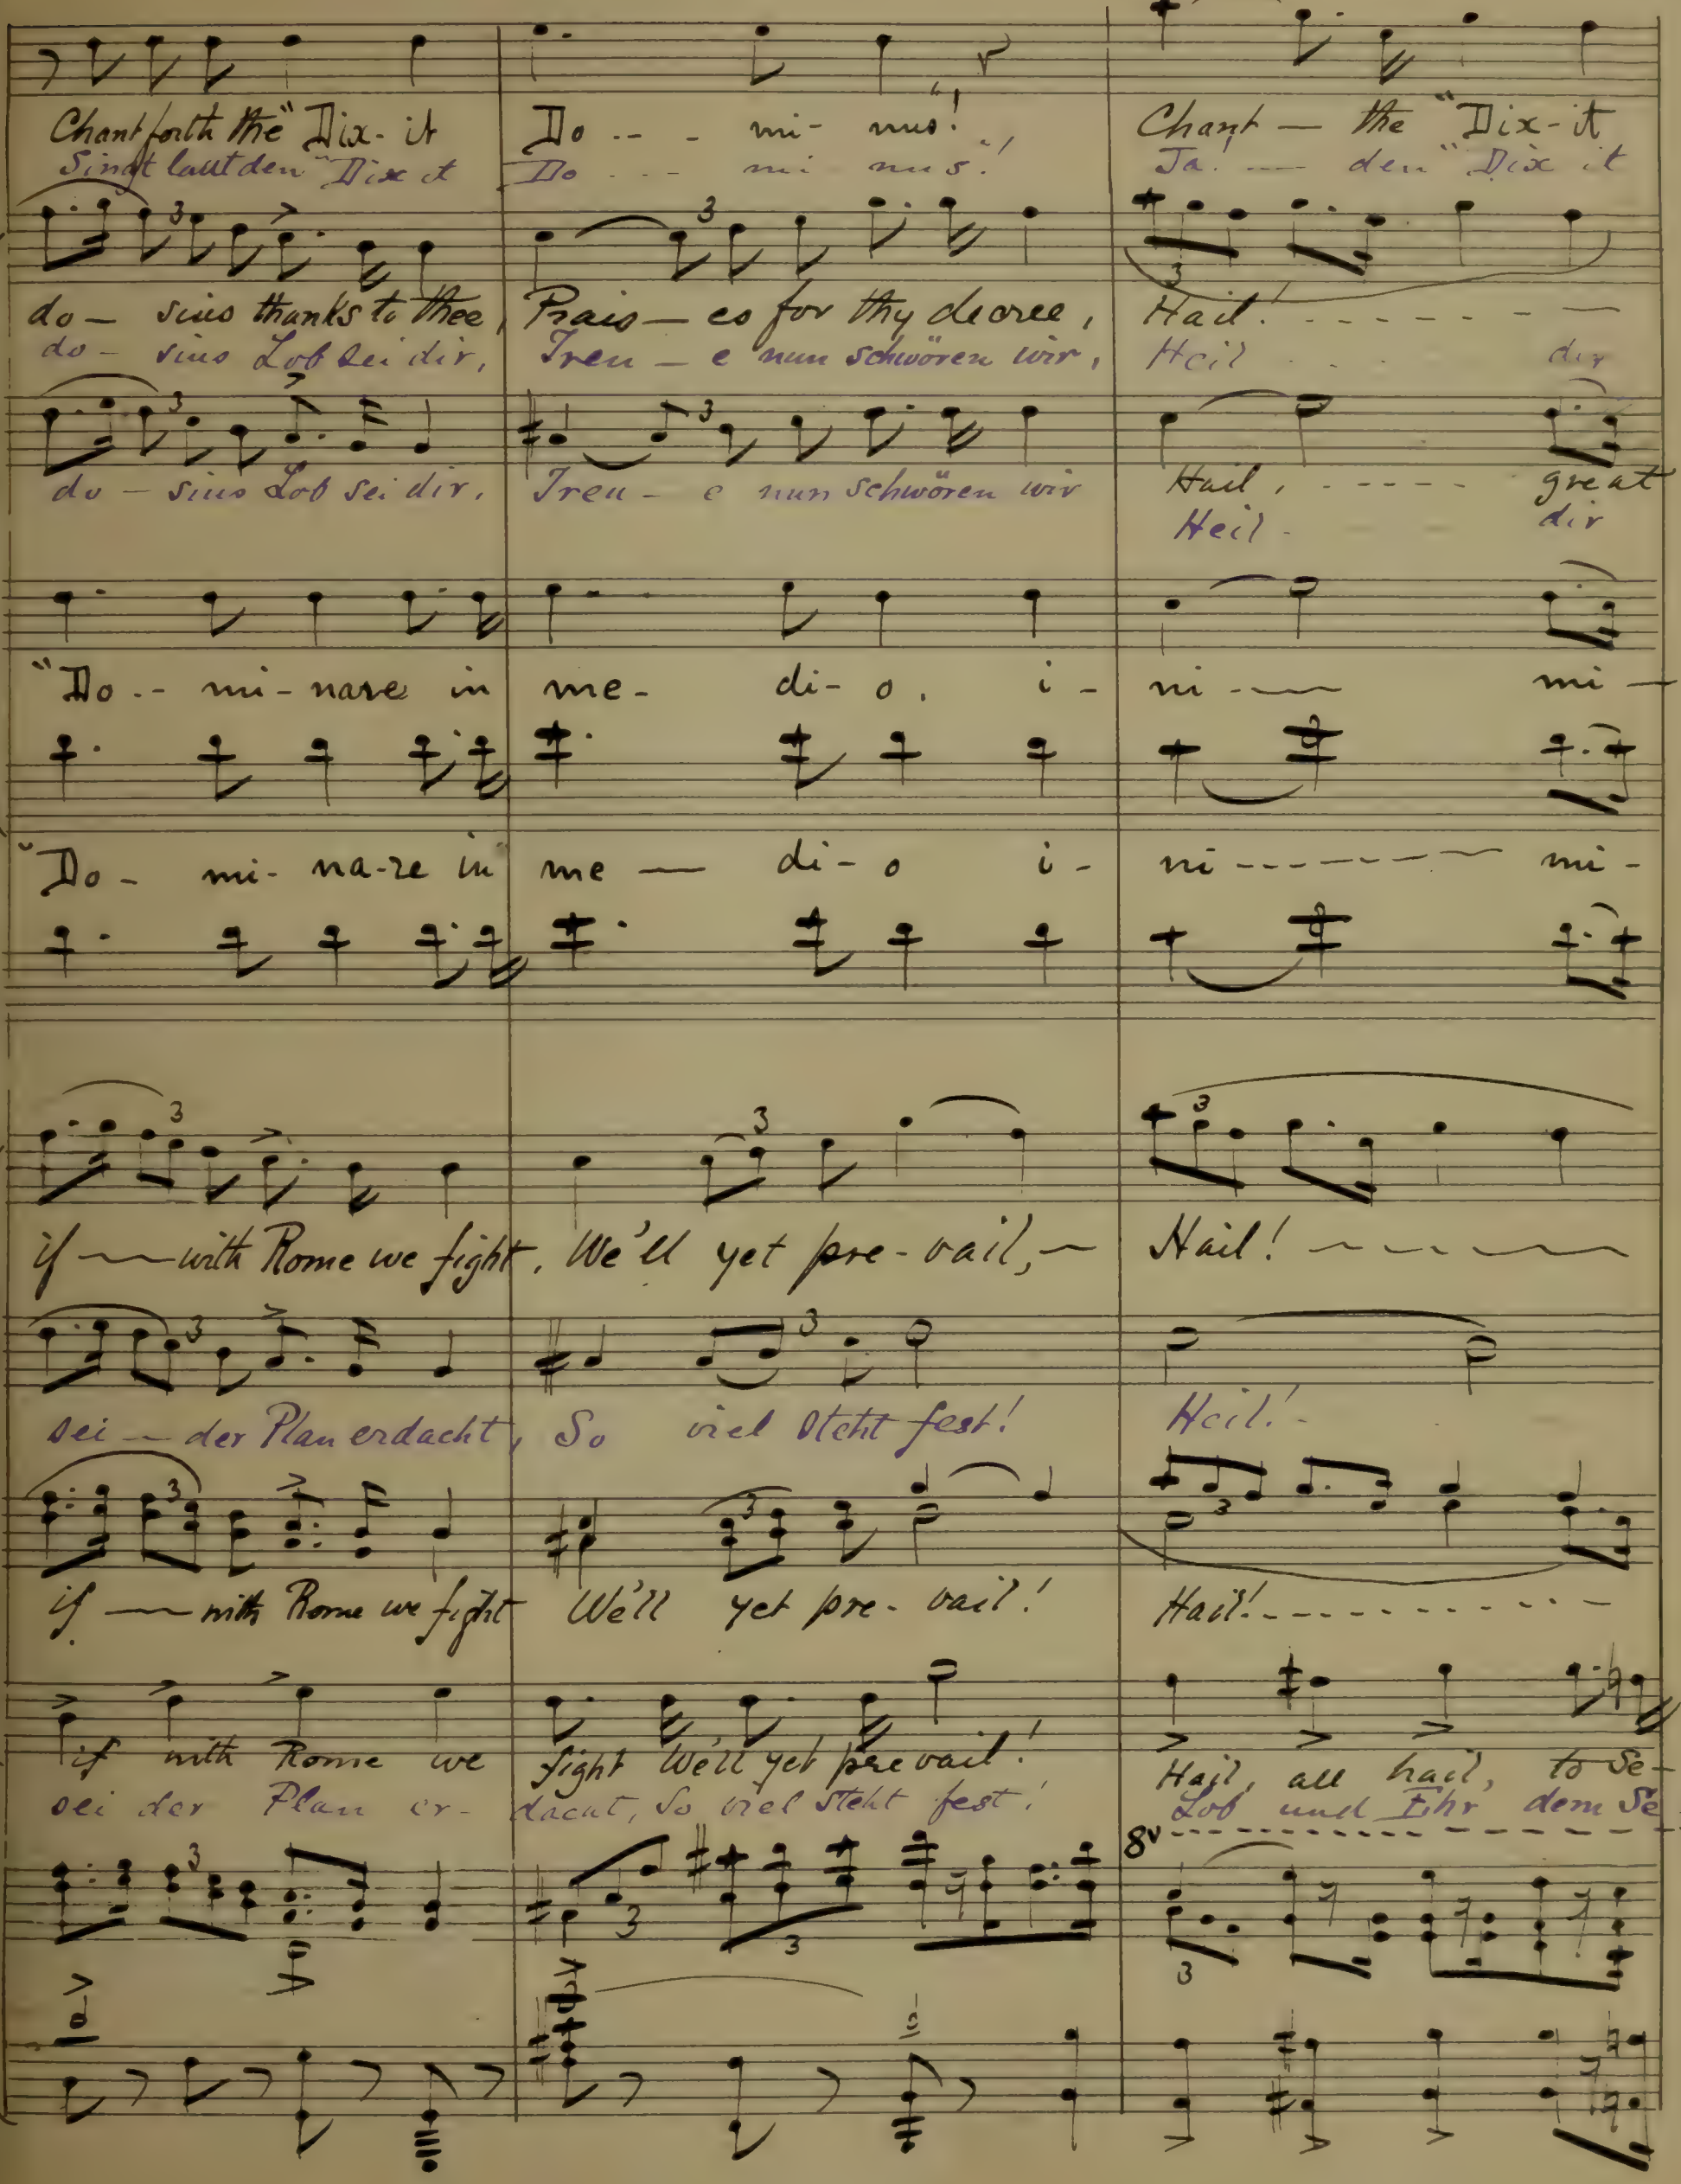 Chant forth the "Dix-it Do -- - mi- nus"! Chant — the "Dix-it
Singt laut den "Dix it Do --- mi nus"! Ja! — den "Dix it
3 3 3
do — sius thanks to thee, Prais — es for thy decree, Hail! - - - - - - —
do — sius Lob sei dir, Treu — e nun schwören wir, Heil . . dir
3 3
do — sius Lob sei dir. Treu — e nun schwören wir Hail, - - - - - great
Heil - dir
"Do -- mi-nare in me- di-o. i- ni - — mi —
"Do- mi- na-re in me — di-o i- ni - - - - - - — mi-
3 3 3
if — with Rome we fight. We'll yet pre-vail, — Hail! — — — — —
3 3
sei — der Plan erdacht, So viel steht fest! Heil! -
3 3 3
if — with Rome we fight We'll yet pre-vail! Hail! - - - - - - - - - —
if with Rome we fight We'll yet prevail! Hail, all hail, to Se-
sei der Plan er- dacht, So viel steht fest! Lob und Ehr dem Se
8v
3 3 3 3